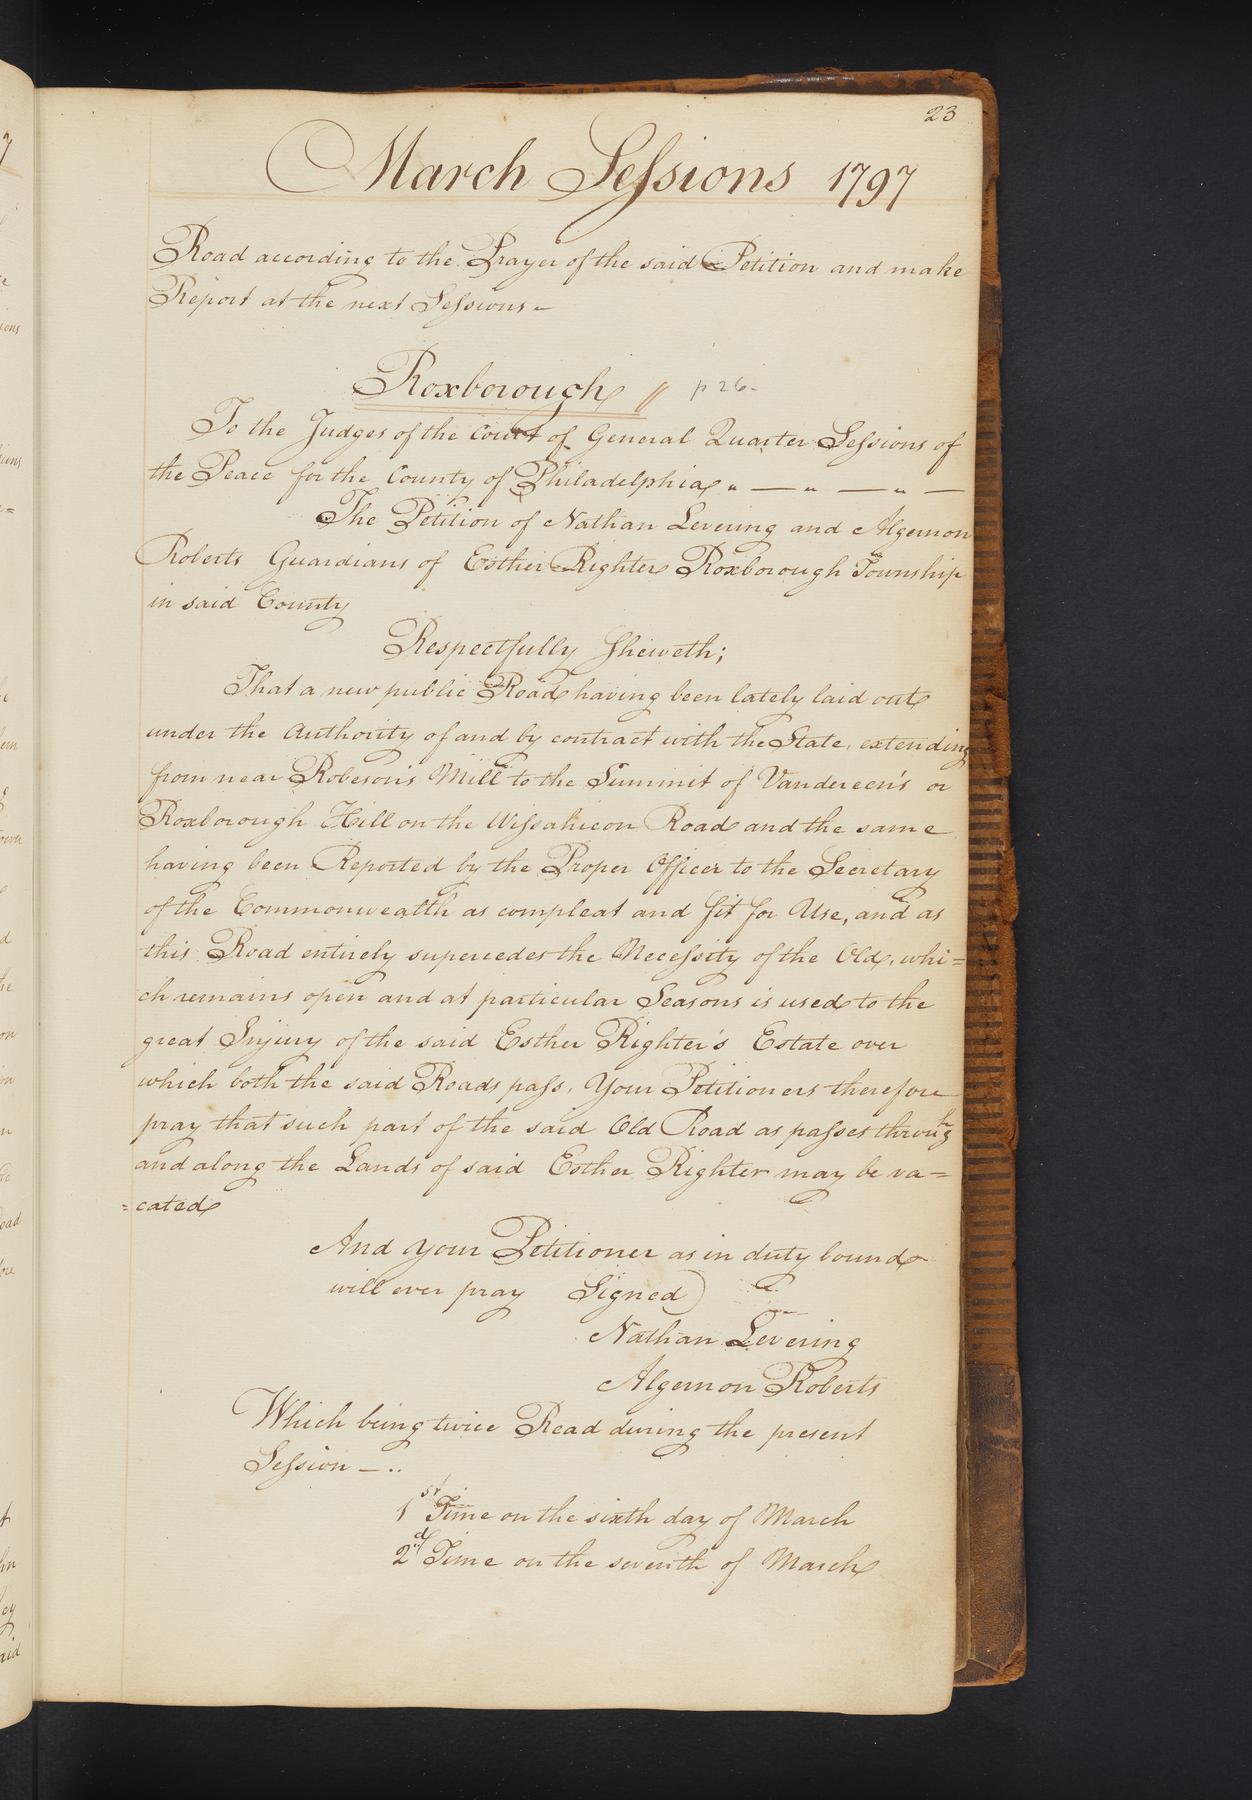 23
March Sessions 1797
Road according to the Prayer of the said Petition and make
Report at the next Sessions -
Roxborough // p 26-
To the Judges of the Court of General Quarter Sessions of
the Peace for the County of Philadelphia " — " — " —
The Petition of Nathan Levering and Algernon
Roberts Guardians of Esther Righter Roxborough Township
in said County
Respectfully Sheweth;
That a new public Road having been lately laid out
under the Authority of and by contract with the State, extending
from near Robeson's Mill to the Summit of Vandereen's or
Roxborough Hill on the Wissahicon Road and the same
having been Reported by the Proper Officer to the Secretary
of the Commonwealth as compleat and fit for Use, and as
this Road entirely supercedes the Necessity of the Old, whi=
ch remains open and at particular Seasons is used to the
great Injury of the said Esther Righter's Estate over
which both the said Roads pass, Your Petitioners therefore
pray that such part of the said Old Road as passes through
and along the Lands of said Esther Righter may be va=
=cated
And your Petitioner as in duty bound
will ever pray Signed)
Nathan Levering
Algernon Roberts
Which being twice Read during the present
Session —..
1st Time on the sixth day of March
2d Time on the seventh of March